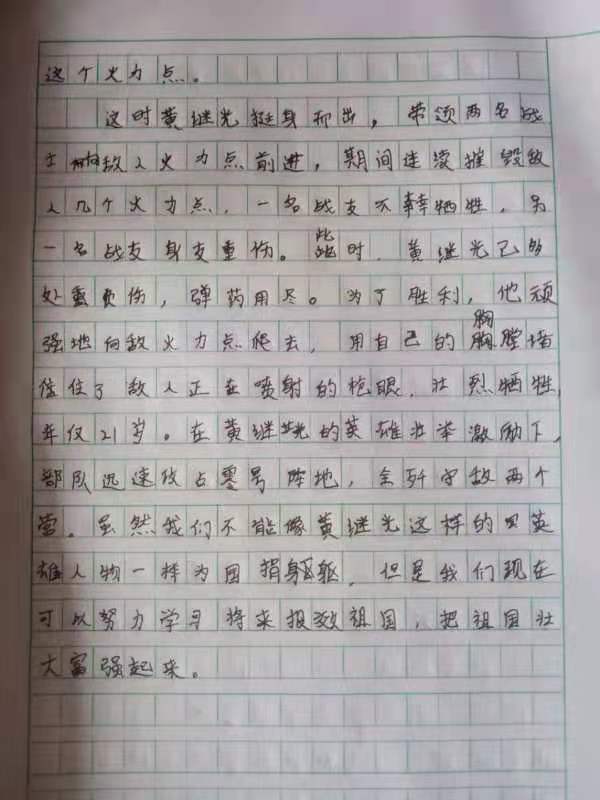 这个火力点。
这时黄继光挺身而出，带领两名战
士向敌人火力点前进，期间连续摧毁敌
人几个火力点，一名战友不幸牺牲，另
一名战友身受重伤。此时，黄继光已多
处重负伤，弹药用尽。为了胜利，他顽
强地向敌火力点爬去，用自己的胸膛堵
住住了敌人正在喷射的枪眼，壮烈牺牲，
年仅21岁。在黄继光的英雄壮举激励下，
部队迅速攻占零号阵地，全歼守敌两个
营。虽然我们不能像黄继光这样的英
雄人物一样为国捐身驱躯，但是我们现在
可以努力学习将来报效祖国，把祖国壮
大富强起来。